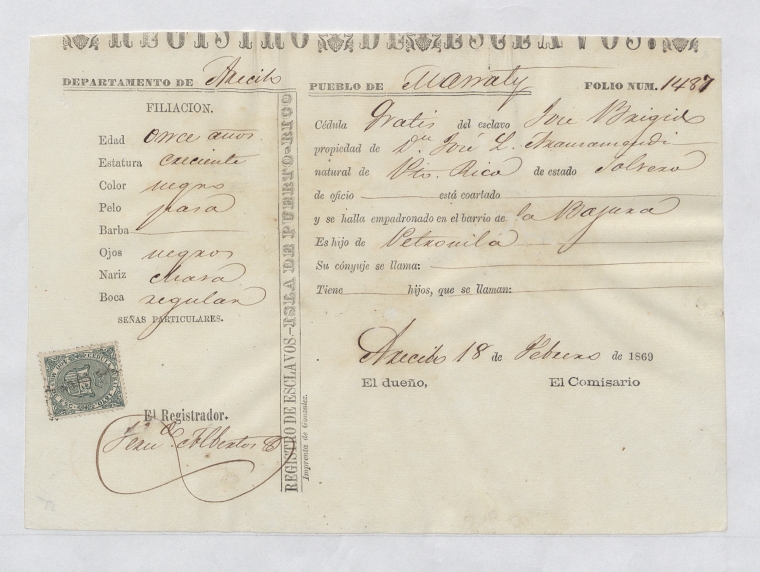 REGISTRO DE ESCLAVOS.
DEPARTAMENTO DE Arecibo
FILIACION.
Edad once años
Estatura creciente
Color negro
Pelo pasa
Barba
Ojos negros
Nariz chata
Boca regular
SEÑAS PARTICULARES.
El Registrador.
Albertos
REGISTRO DE ESCLAVOS—ISLA DE PUERTO-RICO
Imprenta de Gonzalez.
PUEBLO DE Manaty FOLIO NUM. 1487
Cédula Gratis del esclavo José Brigido
propiedad de Dn. José L.
natural de Pto. Rico de estado Soltero
de oficio está coartado
y se halla empadronado en el barrio de la Bajura
Es hijo de Petronila
Su cónyuje se llama:
Tiene hijos, que se llaman:
Arecibo 18 de Febrero de 1869
El dueño, El Comisario